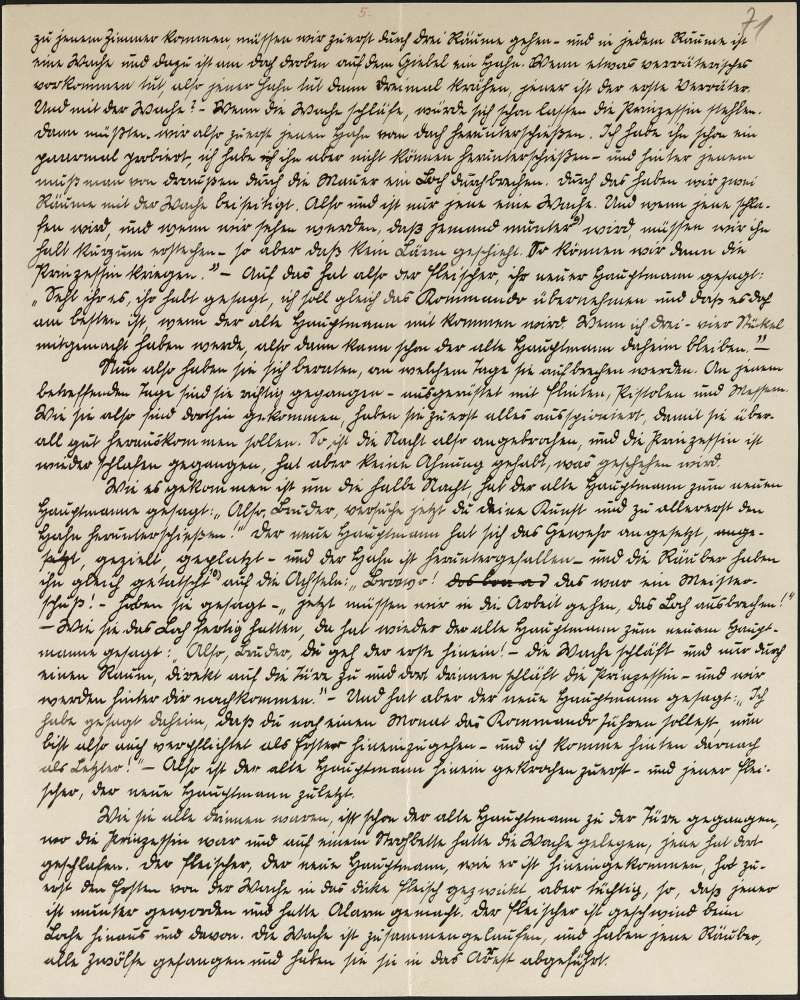 5.
71
zu jenem Zimmer kommen, müssen wir zuerst durch drei Räume gehen - und in jedem Raume ist
eine Wache und dazu ist am Dach droben auf dem Giebel ein Hahn. Wenn etwas verräterisches
vorkommen tut, also jener Hahn tut dann dreimal krähen, jener ist der erste Verräter.
Und mit der Wache? - Wenn die Wache schlafe, würde sich schon lassen die Prinzessin stehlen.
Dann müßten wir also zuerst jenen Hahn vom Dach herunterschießen. Ich habe ihn schon ein
paarmal probiert, ich habe ihn aber nicht können herunterschießen - und hinter jenem
muß man von draußen durch die Mauer ein Loch durchbrechen. Durch das haben wir zwei
Räume mit der Wache beiseitigt. Also und ist nur jene eine Wache. Und wenn jene schla-
fen wird, und wenn wir sehen werden, daß jemand munter wird, müssen wir ihn
halt kurzum erstechen - so aber daß kein Lärm geschieht. So können wir dann die
Prinzessin kriegen." - Auf das hat also der Fleischer, ihr neuer Hauptmann gesagt:
"Seht ihr es, ihr habt gesagt, ich soll gleich das Kommando übernehmen und daß es doch
am besten ist, wenn der alte Hauptmann mit kommen wird. Wenn ich drei - vier Stückel
mitgemacht haben werde, also dann kann schon der alte Hauptmann daheim bleiben." -
Nun also haben sie sich beraten, an welchem Tage sie aufbrechen werden. An jenem
betreffenden Tage sind sie richtig gegangen - ausgerüstet mit Flinten, Pistolen und Messern.
Wie sie also sind dorthin gekommen, haben sie zuerst alles ausspioniert, damit sie über-
all gut herauskommen sollen. So ist die Nacht also angebrochen, und die Prinzessin ist
wieder schlafen gegangen, hat aber keine Ahnung gehabt, was geschehen wird.
Wie es gekommen ist um die halbe Nacht, hat der alte Hauptmann zum neuen
Hauptmanne gesagt: "Also, Bruder, versuche jetzt du deine Kunst und zu allererst den
Hahn herunterschießen!" Der neue Hauptmann hat sich das Gewehr angesetzt, ange-
setzt, gezielt, geplatzt - und der Hahn ist heruntergefallen - und die Räuber haben
ihn gleich getatscht auf die Achseln: "Bravo! das war ein Meister-
schuß! - haben sie gesagt - "jetzt müssen wir in die Arbeit gehen, das Loch ausbrechen!"
- Wie sie das Loch fertig hatten, da hat wieder der alte Hauptmann zum neuen Haupt-
manne gesagt: "Also, Bruder, du geh der erste hinein! - die Wache schläft und nur durch
einen Raum, direkt auf die Türe zu und dort drinnen schläft die Prinzessin - und wir
werden hinter dir nachkommen." - Und hat aber der neue Hauptmann gesagt: "Ich
habe gesagt daheim, daß du noch einen Monat das Kommando führen sollest, nun
bist also auch verpflichtet als Erster hineinzugehen - und ich komme hinten darnach
als Letzter!" - Also ist der alte Hauptmann hinein gekrochen zuerst - und jener Flei-
scher, der neue Hauptmann zuletzt.
Wie sie alle drinnen waren, ist schon der alte Hauptmann zu der Türe gegangen,
wo die Prinzessin war und auf einem Strohbette hatte die Wache gelegen, jene hat dort
geschlafen. Der Fleischer, der neue Hauptmann, wie er ist hineingekommen, hat zu-
erst den Posten von der Wache in das dicke Fleisch gezwickt aber tüchtig, so, daß jener
ist munter geworden und hatte Alarm gemacht. Der Fleischer ist geschwind beim
Loche hinaus und davon. Die Wache ist zusammengelaufen, und haben jene Räuber,
alle zwölfe gefangen und haben sie sie in das Arest abgeführt.